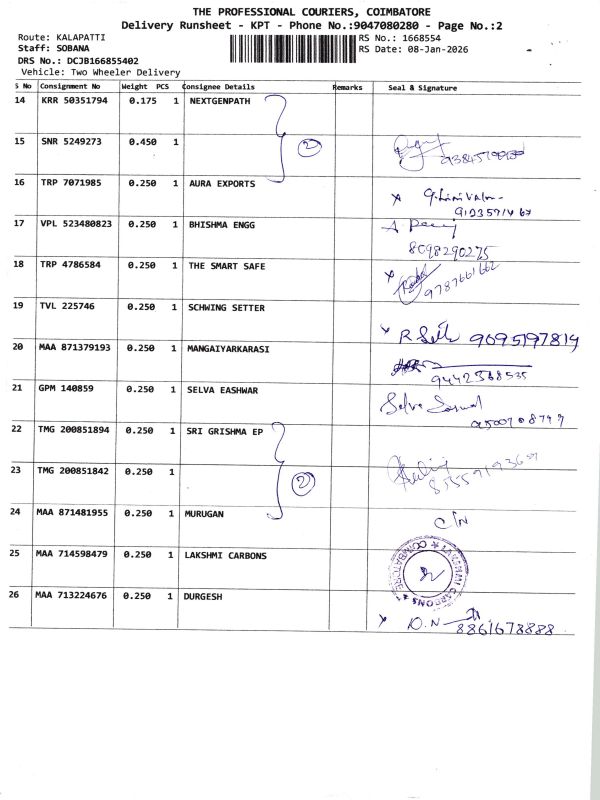 THE PROFESSIONAL COURIERS, COIMBATORE
Delivery Runsheet - KPT - Phone No.:9047080280 - Page No.:2
Route: KALAPATTI
RS No.: 1668554
Staff: SOBANA
RS Date: 08-Jan-2026
DRS No.: DCJB166855402
Vehicle: Two Wheeler Delivery
S No Consignment No Weight PCS Consignee Details Remarks Seal & Signature
14 KRR 50351794 0.175 1 NEXTGENPATH
15 SNR 5249273 0.450 1 2
16 TRP 7071985 0.250 1 AURA EXPORTS
17 VPL 523480823 0.250 1 BHISHMA ENGG
8098290275
18 TRP 4786584 0.250 1 THE SMART SAFE
9787661662
19 TVL 225746 0.250 1 SCHWING SETTER
R 9095197814
20 MAA 871379193 0.250 1 MANGAIYARKARASI
9442368535
21 GPM 140859 0.250 1 SELVA EASHWAR
Selva
22 TMG 200851894 0.250 1 SRI GRISHMA EP
23 TMG 200851842 0.250 1 2
24 MAA 871481955 0.250 1 MURUGAN
C/N
25 MAA 714598479 0.250 1 LAKSHMI CARBONS
COIMBATORE
26 MAA 713224676 0.250 1 DURGESH
D.N 8861678888